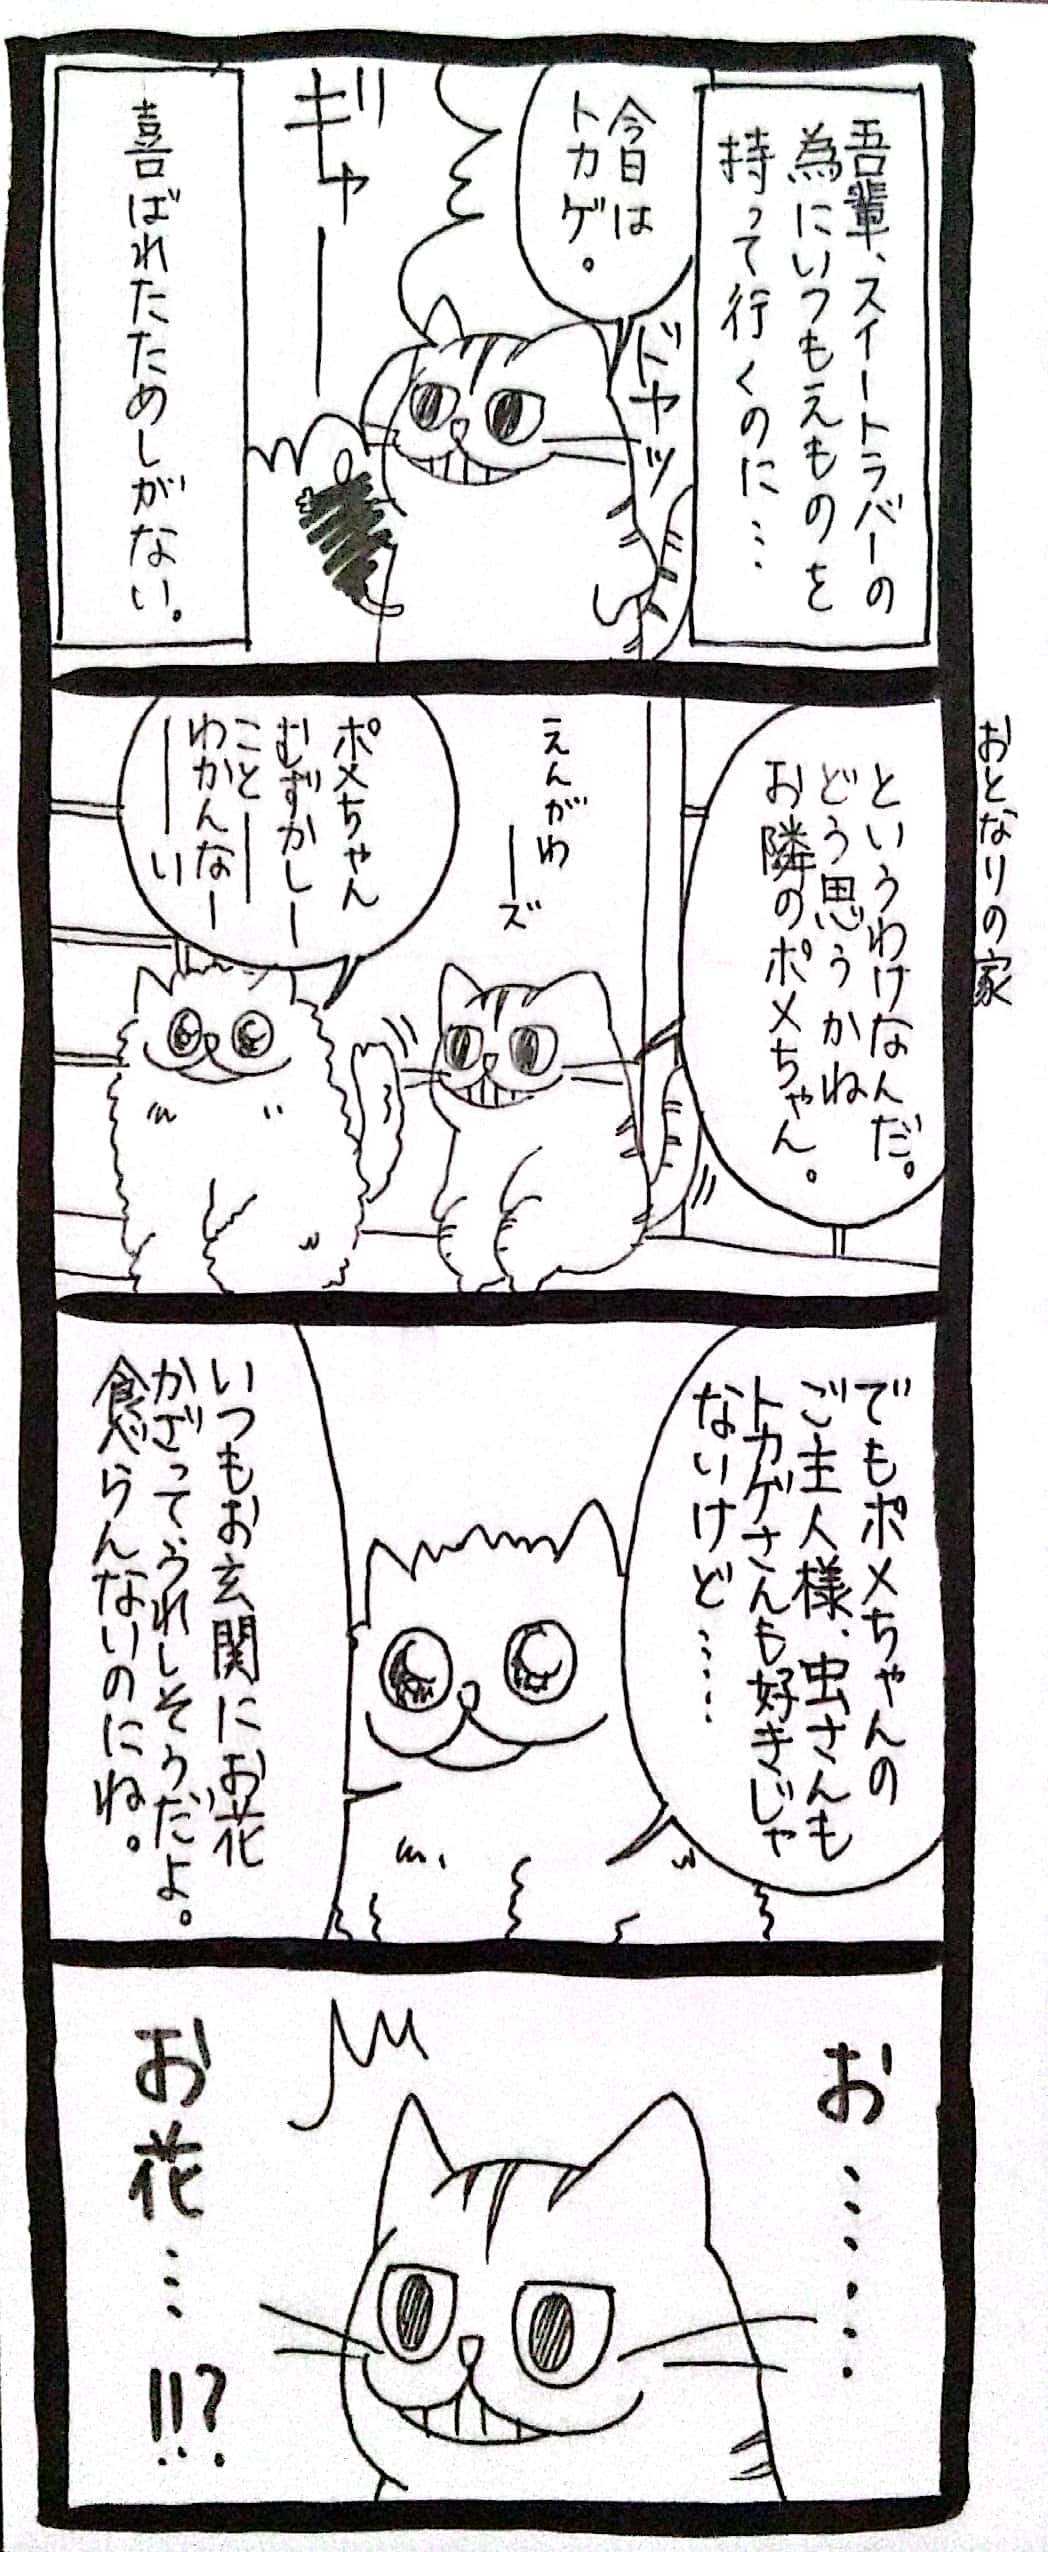 吾輩、スイートラバーの
為にいつもえものを
持って行くのに…
今日は
トカゲ。
ドヤッ
ギャー
喜ばれたためしがない。
おとなりの家
というわけなんだ。
どう思うかね
お隣のポメちゃん。
えんがわ
ーズ
ポメちゃん
むずかしー
ことー
わかんなー
ーい
でもポメちゃんの
ご主人様、虫さんも
トカゲさんも好きじゃ
ないけど……
いつもお玄関にお花
かざってうれしそうだよ。
食べらんないのにね。
お……
お花…!!?